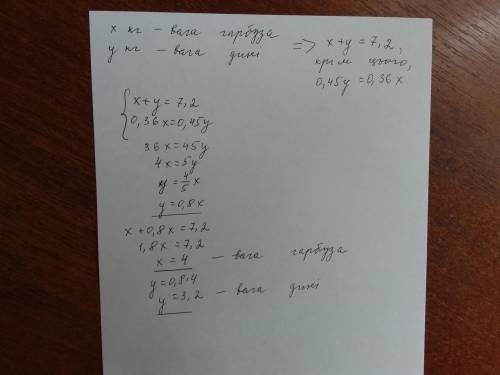 x кг – вага гарбуза
y кг – вага дині
=> x+y = 7,2,
крім цього,
0,45y = 0,36x
x+y = 7,2
0,36x = 0,45y
36x = 45y
4x = 5y
y = 4/5 x
y = 0,8x
x + 0,8x = 7,2
1,8x = 7,2
x = 4 – вага гарбуза
y = 0,8·4
y = 3,2 – вага дині